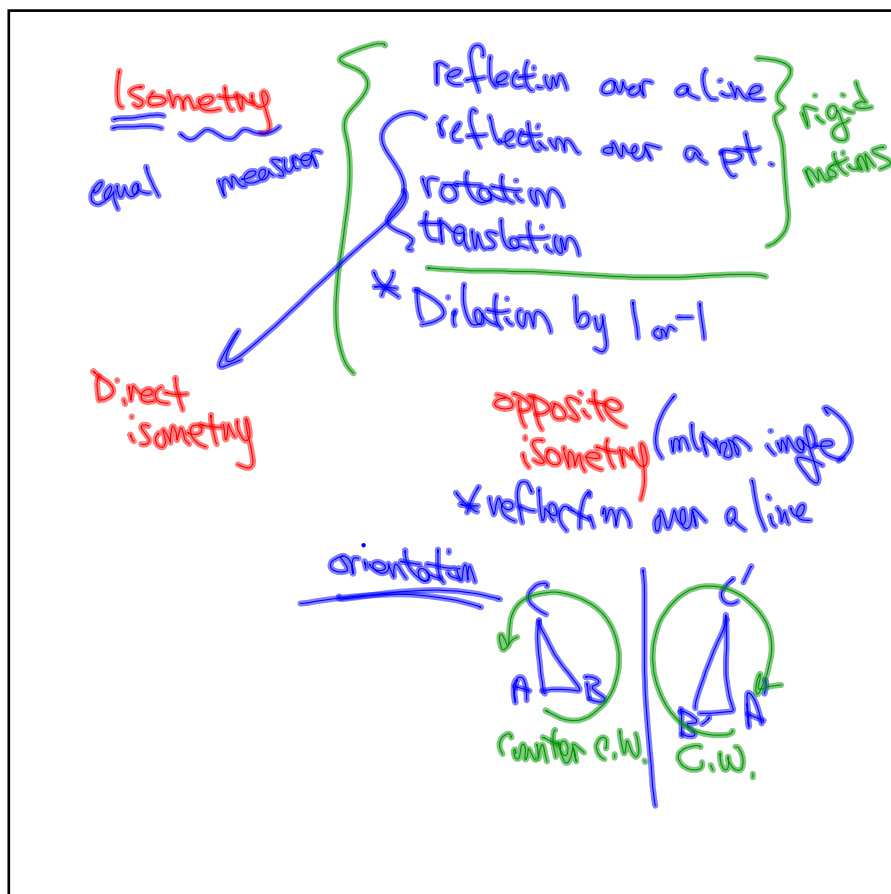 Isometry
equal measure
reflection over a line
reflection over a pt.
rotation
translation
rigid
motions
* Dilation by 1 or -1
Direct
isometry
opposite
isometry (mirror image)
* reflection over a line
orientation
C C'
A B B' A'
Counter C.W. C.W.